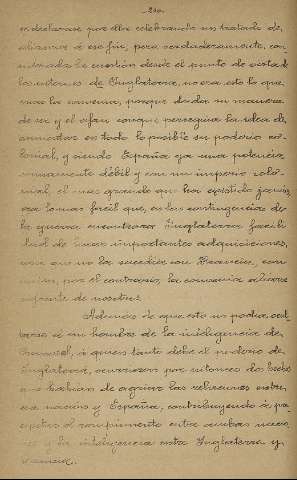 -210-
declararse por ella celebrando un tratado de
alianza á ese fin, pero verdaderamente, con-
siderada la cuestión desde el punto de vista de
los intereses de Inglaterra, no era esto lo que
más la convenía, porque dada su manera
de ser y el afan conque perseguía la idea de
aumentar en todo lo posible su poderío co-
lonial, y siendo España ya una potencia
sumamente débil y con un imperio colo-
nial, el más grande que ha existido jamás,
era lo mas fácil que, en las contingencias de
la guerra encontrara Inglaterra facili-
dad de hacer importantes adquisiciones,
cosa que no la sucedía con Francia,
por el contrario, la convenía
enfrente de nosotros.
Además de que esto no podía ocul-
tarse á un hombre de la inteligencia de
á quien tanto debe el poderío de
Inglaterra, ocurrieron por entonces dos hechos
que habian de agriar las relaciones entre
esa nacion y España, contribuyendo á
el rompimiento entre ambas nacio-
nes y la inteligencia entre Inglaterra y
Francia.